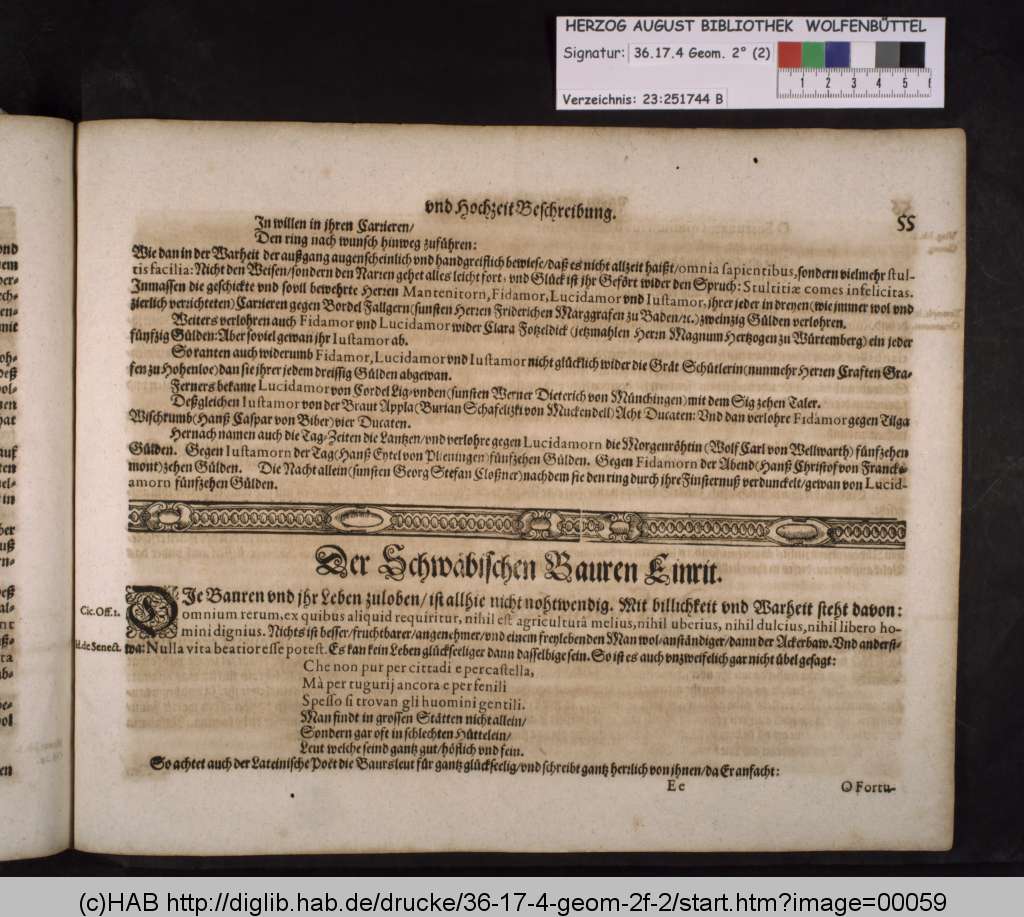 HERZOG AUGUST BIBLIOTHEK WOLFENBÜTTEL
Signatur: 36.17.4 Geom. 2° (2)
1 2 3 4 5 6
Verzeichnis: 23:251744 B
vnd Hochzeit Beschreibung.
55
In willen in jhren Carrieren/
Den ring nach wunsch hinweg zuführen:
Wie dan in der Warheit der außgang augenscheinlich vnd handgreiflich bewiese/daß es nicht allzeit haißt/omnia sapientibus, sondern vielmehr stul-
tis facilia: Nicht den Weisen/sondern den Narren gehet alles leicht fort, vnd Glück ist jhr Gefört wider den Spruch: Stultitiæ comes infelicitas.
Inmassen die geschickte vnd sovil bewehrte Herren Mantenitorn, Fidamor, Lucidamor vnd Iustamor, jhrer jeder in dreyen (wie jmmer wol vnd
zierlich verrichteten) Carrieren gegen Bordel Fallgern (sunsten Herren Friderichen Marggrafen zu Baden/tc.) zweinzig Gülden verlohren.
Weiters verlohren auch Fidamor vnd Lucidamor wider Clara Fotzeldick (jetzmahlen Herrn Magnum Hertzogen zu Würtemberg) ein jeder
fünfzig Gülden: Aber soviel gewan jhr Iustamor ab.
So ranten auch widerumb Fidamor, Lucidamor vnd Iustamor nicht glücklich wider die Grät Schütlerin (nunmehr Herren Craften Gra-
fen zu Hohenloe) dan sie jhrer jedem dreissig Gülden abgewan.
Ferners bekame Lucidamor von Cordel Lig-vnden (sunsten Werner Dieterich von Münchingen) mit dem Sig zehen Taler.
Deßgleichen Iustamor von der Braut Appla (Burian Schafelizki von Muckendell) Acht Ducaten: Vnd dan verlohre Fidamor gegen Tilga
Wischrumb (Hanß Caspar von Biber) vier Ducaten.
Hernach namen auch die Tag-Zeiten die Lantzen/vnd verlohre gegen Lucidamorn die Morgenröhtin (Wolf Carl von Wellwarth) fünfzehen
Gülden. Gegen Iustamorn der Tag (Hanß Eytel von Plieningen) fünfzehen Gülden. Gegen Fidamorn der Abend (Hanß Christof von Francke-
mont) zehen Gülden. Die Nacht allein (sunsten Georg Stefan Cloßner) nachdem sie den ring durch jhre Finsternuß verdunckelt/gewan von Lucid-
amorn fünfzehen Gülden.
Der Schwäbischen Bauren Einrit.
DIe Bauren vnd jhr Leben zuloben/ ist allhie nicht nohtwendig. Mit billichkeit vnd Warheit steht davon:
Cic. Off. 1.
omnium rerum, ex quibus aliquid requiritur, nihil est agricultura melius, nihil uberius, nihil dulcius, nihil libero ho-
mini dignius. Nichts ist besser/fruchtbarer/angenehmer/vnd einem freylebenden Man wol/anständiger/dann der Ackerbaw. Vnd andersi-
Id. de Senect.
twa: Nulla vita beatior esse potest. Es kan kein Leben glückseeliger dann dasselbige sein. So ist es auch vnzweifelich gar nicht übel gesagt:
Che non pur per cittadi e per castella,
Mà per tugurij ancora e per fenili
Spesso si trovan gli huomini gentili.
Man findt in grossen Stätten nicht allein/
Sondern gar oft in schlechten Hüttelein/
Leut welche seind gantz gut/höflich vnd fein.
So achtet auch der Lateinische Poët die Baursleut für gantz glückseelig/vnd schreibt gantz herrlich von jhnen/da Er anfacht:
Ee
O Fortu-
(c)HAB http://diglib.hab.de/drucke/36-17-4-geom-2f-2/start.htm?image=00059